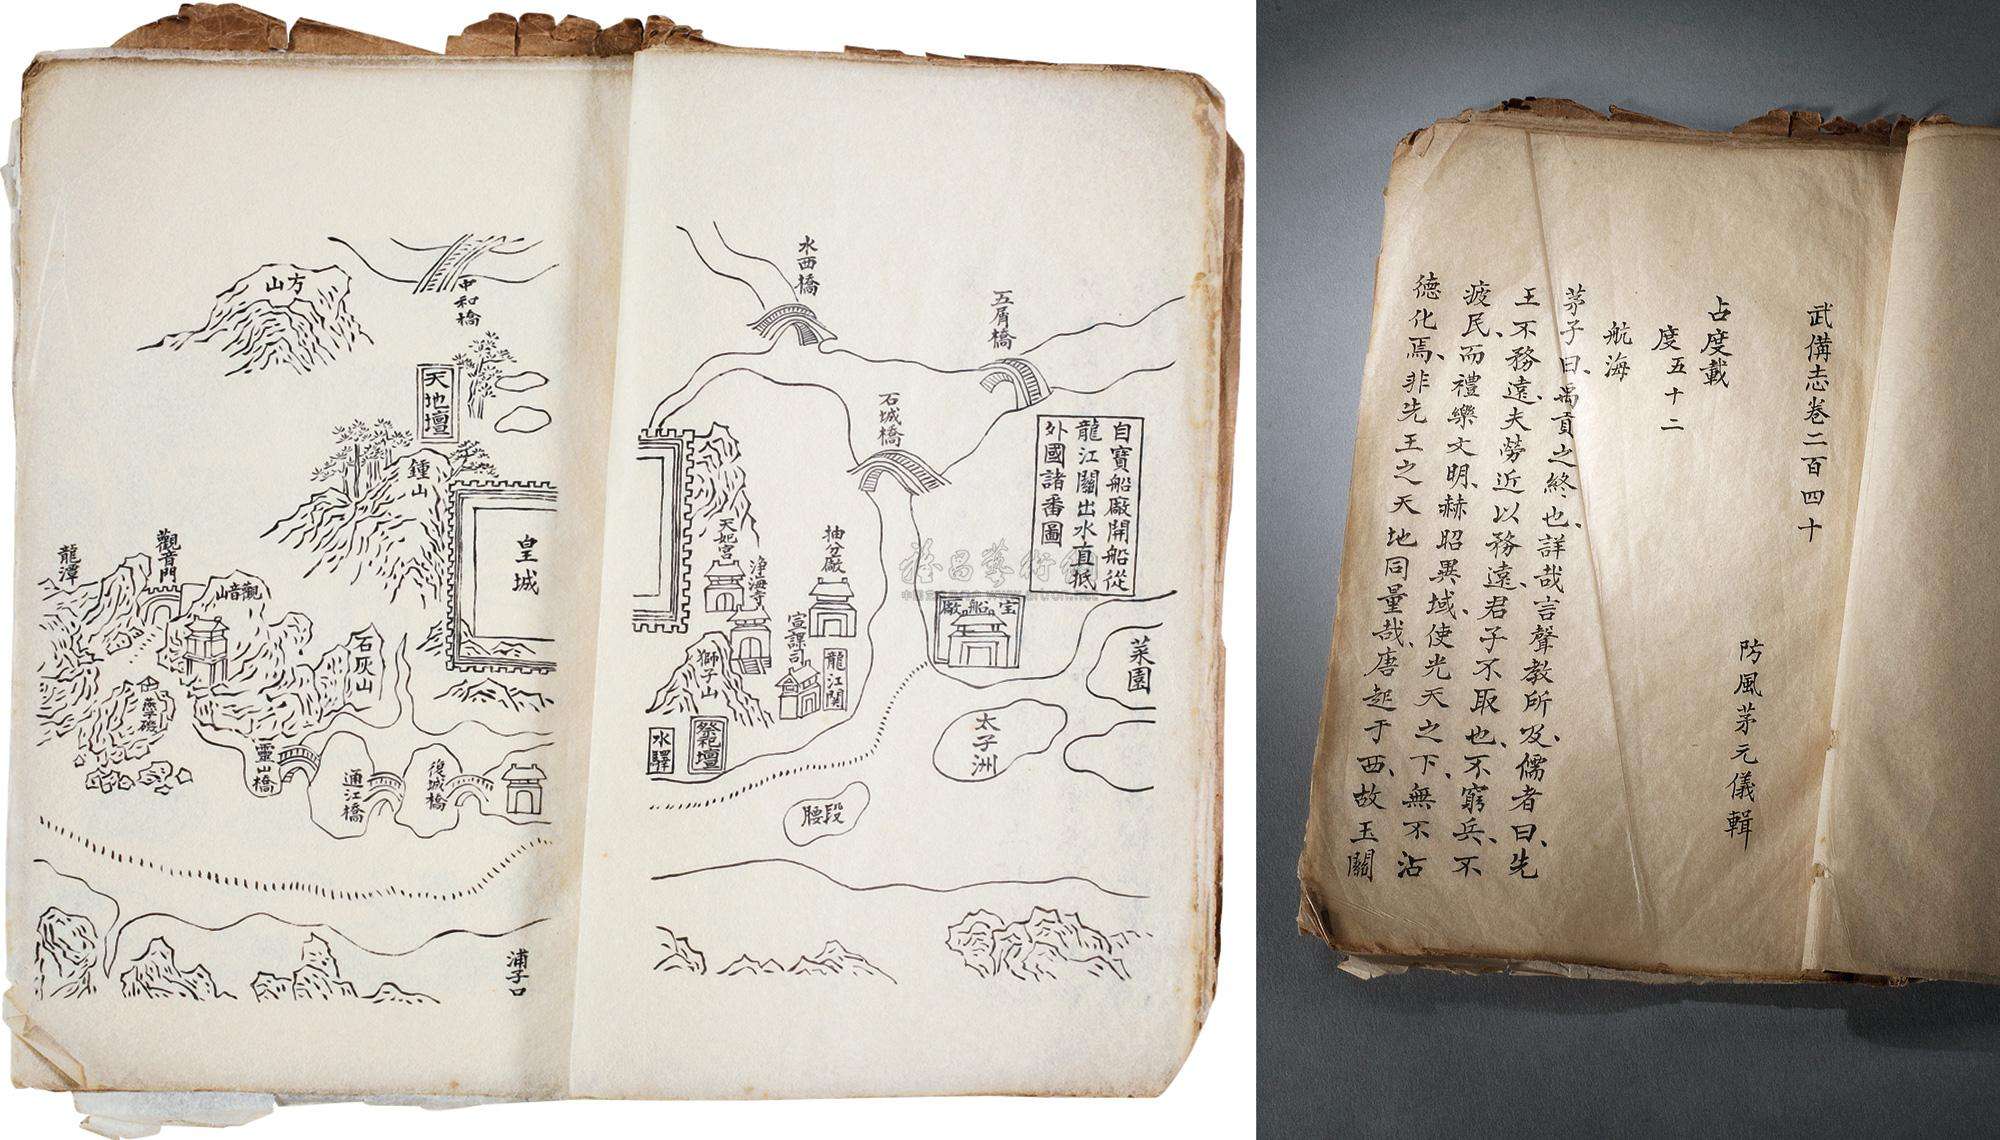 水西橋
五屑橋
石城橋
自寶船廠開船從
龍江關出水直抵
外國諸番圖
宝船廠
菜園
太子洲
抽分廠
天妃宮
淨海寺
宣課司
龍江關
獅子山
祭祀壇
水驛
腰段
中和橋
方山
天地壇
鍾山
皇城
觀音門
龍潭
觀音山
石灰山
燕子磯
靈山橋
通江橋
復城橋
浦子口
武備志卷二百四十
防風茅元儀輯
占度載
度五十二
航海
茅子曰、禹貢之終也、詳哉言聲教所及、儒者曰、先
王不務遠、夫勞近以務遠、君子不取也、不窮兵、不
疲民、而禮樂文明、赫昭異域、使光天之下、無不沾
德化焉、非先王之天地同量哉、唐起于西、故玉關